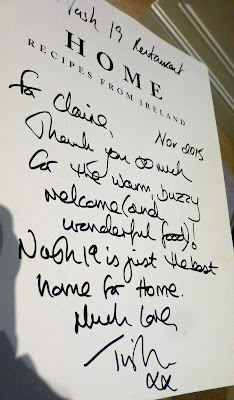 Nash 19 Restaurant
HOME
RECIPES FROM IRELAND
for Claire,
Nov 2015
Thank you so much
for the warm, buzzy
welcome (and
wonderful food)!
Nash 19 is just the best
home for Home.
Much love,
Trish
xx